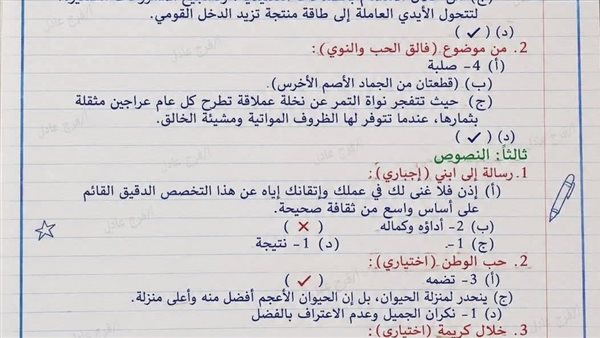 لتتحول الأيدي العاملة إلى طاقة منتجة تزيد الدخل القومي.
(د) ( ✓ )
2. من موضوع (فالق الحب والنوي):
(أ) 4- صلبة
(ب) (قطعتان من الجماد الأصم الأخرس).
(ج) حيث تتفجر نواة التمر عن نخلة عملاقة تطرح كل عام عراجين مثقلة
بثمارها، عندما تتوفر لها الظروف المواتية ومشيئة الخالق.
(د) ( ✓ )
ثالثاً: النصوص
1. رسالة إلى ابني (إجباري):
(أ) إذن فلا غنى لك في عملك وإتقانك إياه عن هذا التخصص الدقيق القائم
على أساس واسع من ثقافة صحيحة.
(ب) 2- أداؤه وكماله ( ✗ )
(ج) 1-. (د) 1- نتيجة
2. حب الوطن (اختياري):
(أ) 3- تضمه ( ✓ )
(ج) ينحدر لمنزلة الحيوان، بل إن الحيوان الأعجم أفضل منه وأعلى منزلة.
(د) 1- نكران الجميل وعدم الاعتراف بالفضل
3. خلال كريمة (اختياري):